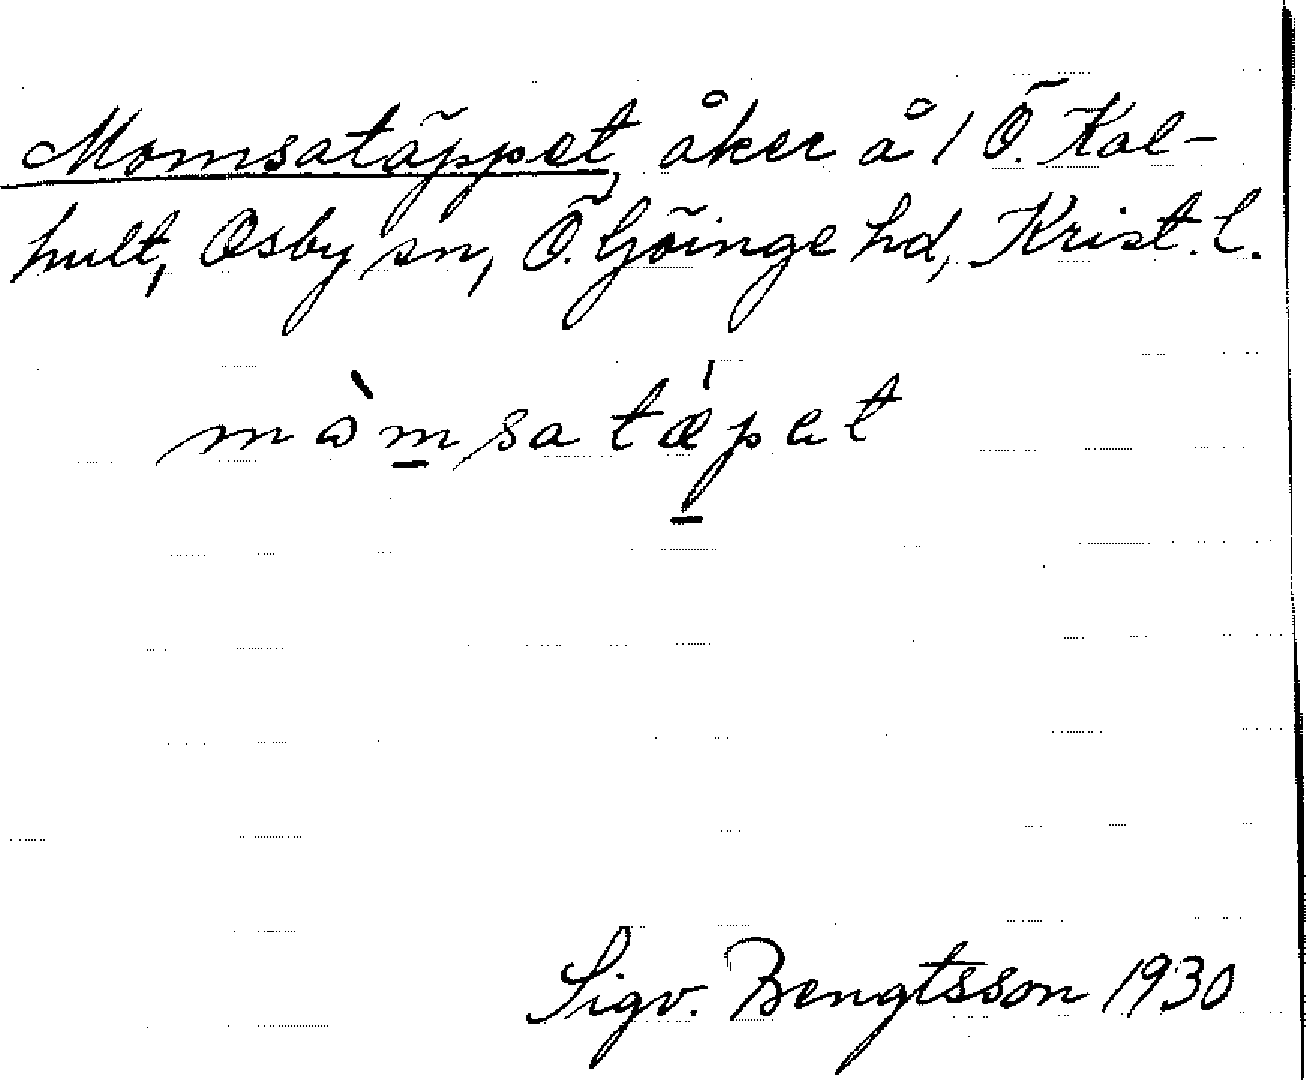 Momsatäppet, åker å 1 Ö. Kal-
hult, Osby sn, Ö. Göinge hd, Krist. l.
mòmsatǽpet
Sigv. Bengtsson 1930